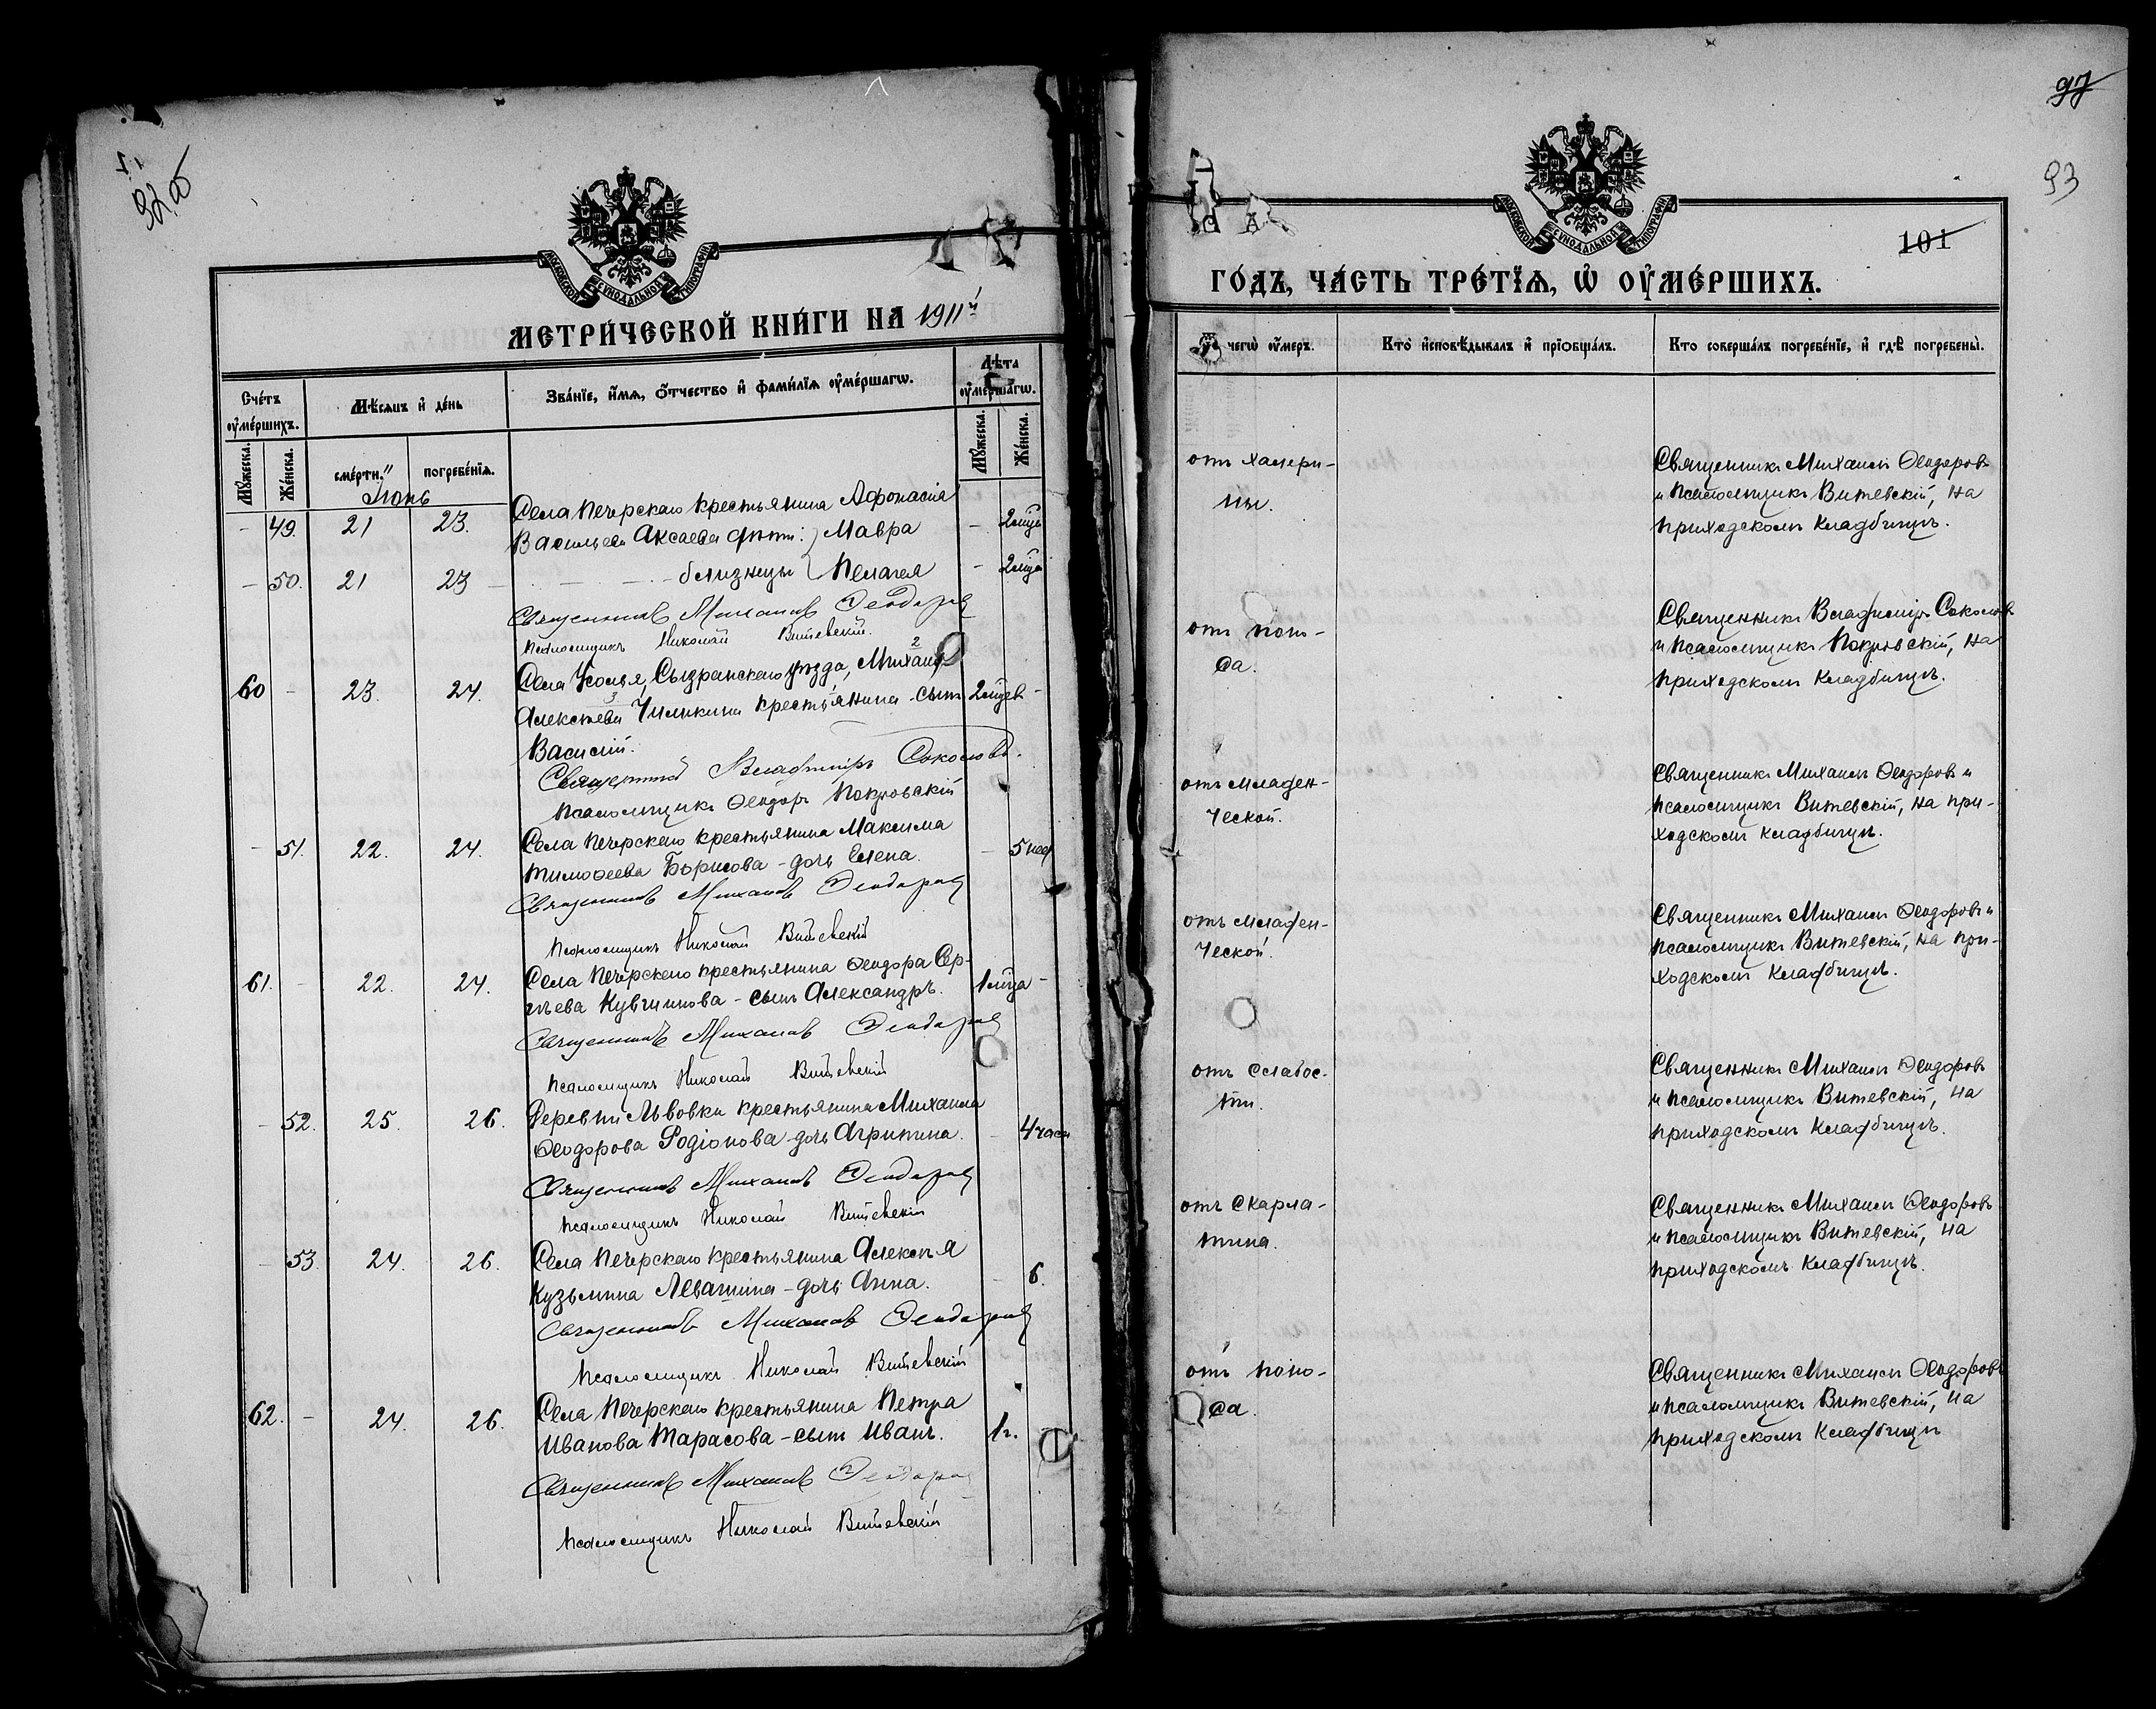 92 об
МОСКОВСКОЙ СѴНОДАЛЬНОЙ ТИПОГРАФІИ
МЕТРИ́ЧЕСКОЙ КНИ́ГИ НА 1911й
Сче́тъ ᲂу҆ме́ршихъ.
Мѣ́сяцъ и҆ де́нь
Зва́нїе, и҆́мѧ, ѻ҆́тчество и҆ фами́лїѧ ᲂу҆ме́ршагѡ.
Лѣ́та ᲂу҆ме́ршагѡ.
Мꙋ́жеска.
Же́нска.
сме́рти.
погребе́нїѧ.
Мꙋ́жеска.
Же́нска.
Іюнь
Села Печерскаго крестьянина Афонасія
- 49. 21 23. Васильева Аксаева дѣти: } Мавра - 2 мѣс
- 50. 21 23 - близнецы { Пелагея - 2 мѣс
Священникъ Михаилъ Ѳеодоровъ
Псаломщикъ Николай Витевскій.
Села Усолья, Сызранскаго уѣзда, Михаила 2
60 - 23. 24. Алексѣева 3 Чиликина крестьянина - сынъ 2 мѣсев -
Василій.
Священникъ Владиміръ Соколовъ.
Псаломщикъ Ѳеодоръ Покровскій
Села Печерскаго крестьянина Максима
- 51. 22. 24. Тимоѳеева Борисова - дочь Елена. - 5 нед
Священникъ Михаилъ Ѳеодоровъ
Псаломщикъ Николай Витевскій
Села Печерскаго крестьянина Ѳеодора Сер-
61. - 22. 24. гѣева Кувшинова - сынъ Александръ. 1 мѣса -
Священникъ Михаилъ Ѳеодоровъ
Псаломщикъ Николай Витевскій
Деревни Львовки крестьянина Михаила
- 52. 25. 26. Ѳеодорова Родіонова - дочь Агрипина. - 4 часа
Священникъ Михаилъ Ѳеодоровъ
Псаломщикъ Николай Витевскій
Села Печерскаго крестьянина Алексѣя
- 53. 24. 26. Кузьмина Левашина - дочь Анна. - 6.
Священникъ Михаилъ Ѳеодоровъ
Псаломщикъ Николай Витевскій
Села Печерскаго крестьянина Петра
62. - 24. 26. Иванова Тарасова - сынъ Иванъ. 1 г.
Священникъ Михаилъ Ѳеодоровъ
Псаломщикъ Николай Витевскій
97
93
101
МОСКОВСКОЙ СѴНОДАЛЬНОЙ ТИПОГРАФІИ
ГО́ДЪ, ЧА́СТЬ ТРЕ́ТЇѦ, Ѡ҆ ОУ҆МЕ́РШИХЪ.
чегѡ̀ ᲂу҆́меръ.
Кто̀ и҆сповѣ́дывалъ и҆ прїѡбща́лъ.
Кто̀ соверша́лъ погребе́нїе, и҆ гдѣ̀ погребены̀.
отъ холери-
ны.
Священникъ Михаилъ Ѳеодоровъ
и псаломщикъ Витевскій, на
приходскомъ кладбищѣ.
отъ поно-
са.
Священникъ Владиміръ Соколовъ
и псаломщикъ Покровскій, на
приходскомъ кладбищѣ.
отъ младен-
ческой.
Священникъ Михаилъ Ѳеодоровъ и
псаломщикъ Витевскій, на при-
ходскомъ кладбищѣ.
отъ младен-
ческой.
Священникъ Михаилъ Ѳеодоровъ и
псаломщикъ Витевскій, на при-
ходскомъ кладбищѣ.
отъ слабос-
ти.
Священникъ Михаилъ Ѳеодоровъ
и псаломщикъ Витевскій, на
приходскомъ кладбищѣ.
отъ скарла-
тина.
Священникъ Михаилъ Ѳеодоровъ
и псаломщикъ Витевскій, на
приходскомъ кладбищѣ.
отъ поно-
са.
Священникъ Михаилъ Ѳеодоровъ
и псаломщикъ Витевскій, на
приходскомъ кладбищѣ